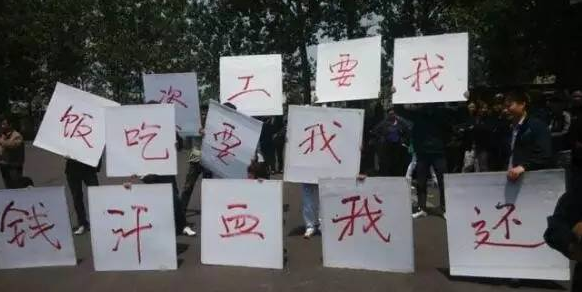 我要工资
我要吃饭
还我血汗钱